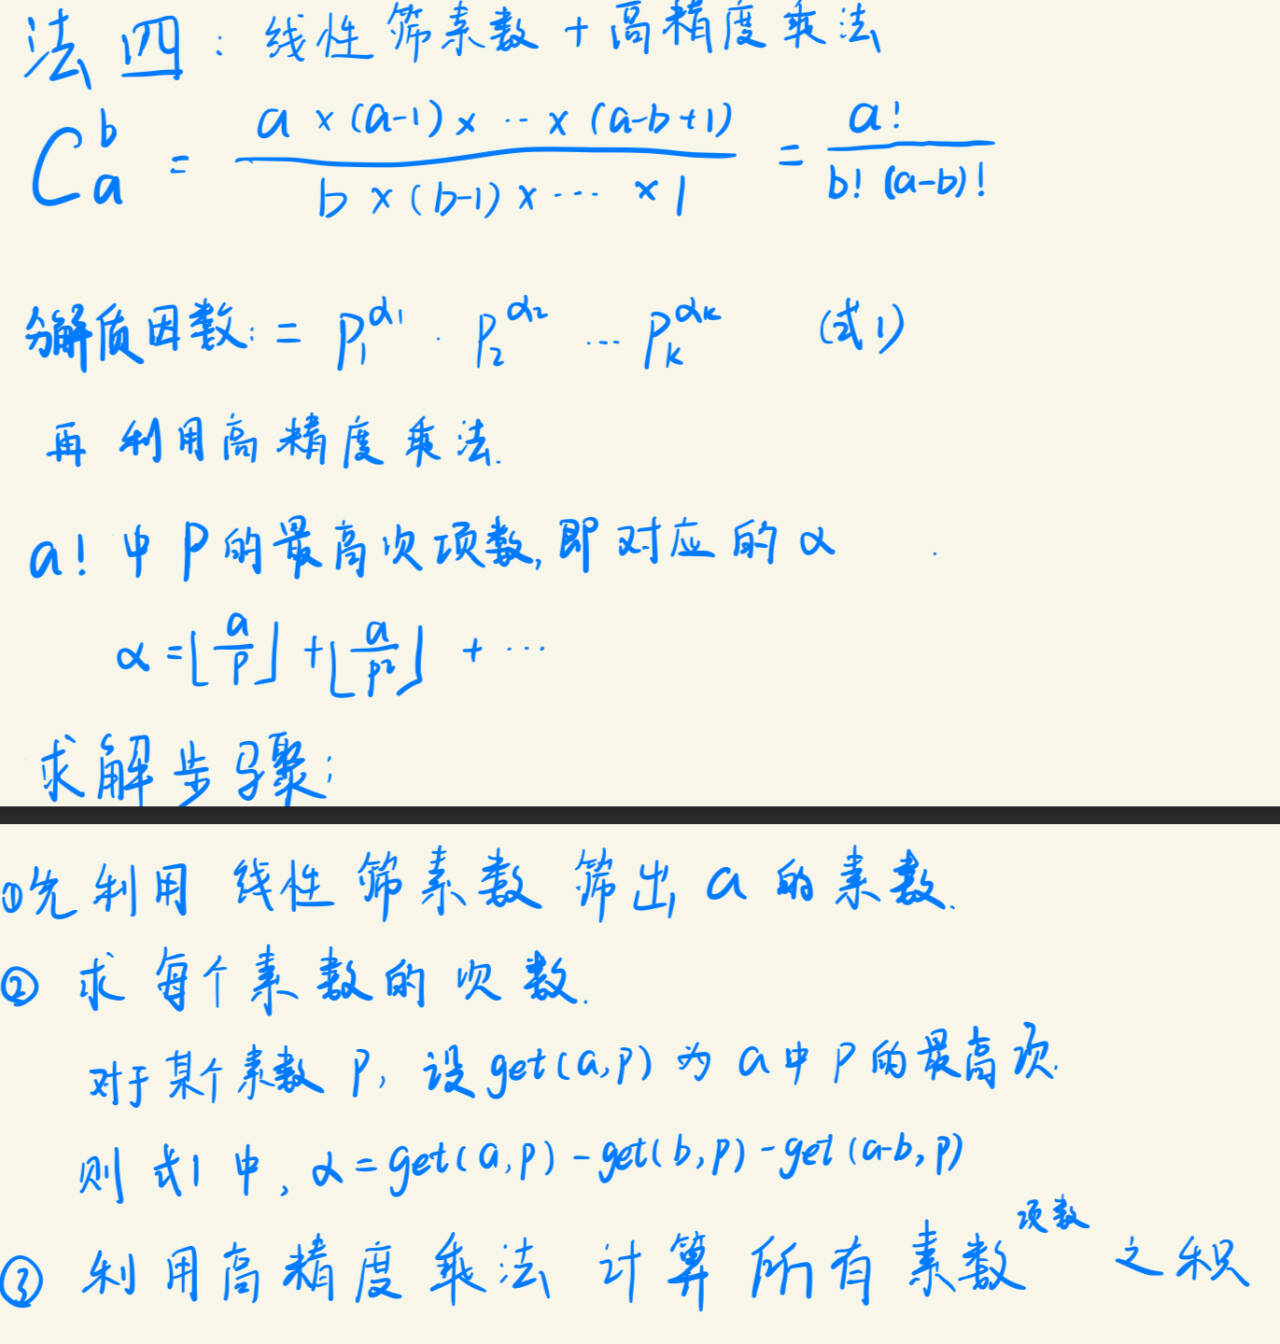 法四：线性筛素数 + 高精度乘法
C_a^b = \frac{a×(a-1)×…×(a-b+1)}{b×(b-1)×…×1} = \frac{a!}{b!(a-b)!}
分解质因数：= P_1^{α_1} · P_2^{α_2} … P_k^{α_k} (式1)
再利用高精度乘法.
a! 中 P 的最高次项数, 即对应的 α
α = ⌊\frac{a}{p}⌋ + ⌊\frac{a}{p^2}⌋ + …
求解步骤:
①先利用 线性筛素数 筛出 a 的素数.
② 求每个素数的次数.
对于某个素数 P, 设 get(a,p) 为 a 中 P 的最高次.
则式1中, α = get(a,p) - get(b,p) - get(a-b,p)
③ 利用高精度乘法 计算 所有素数^{项数} 之积